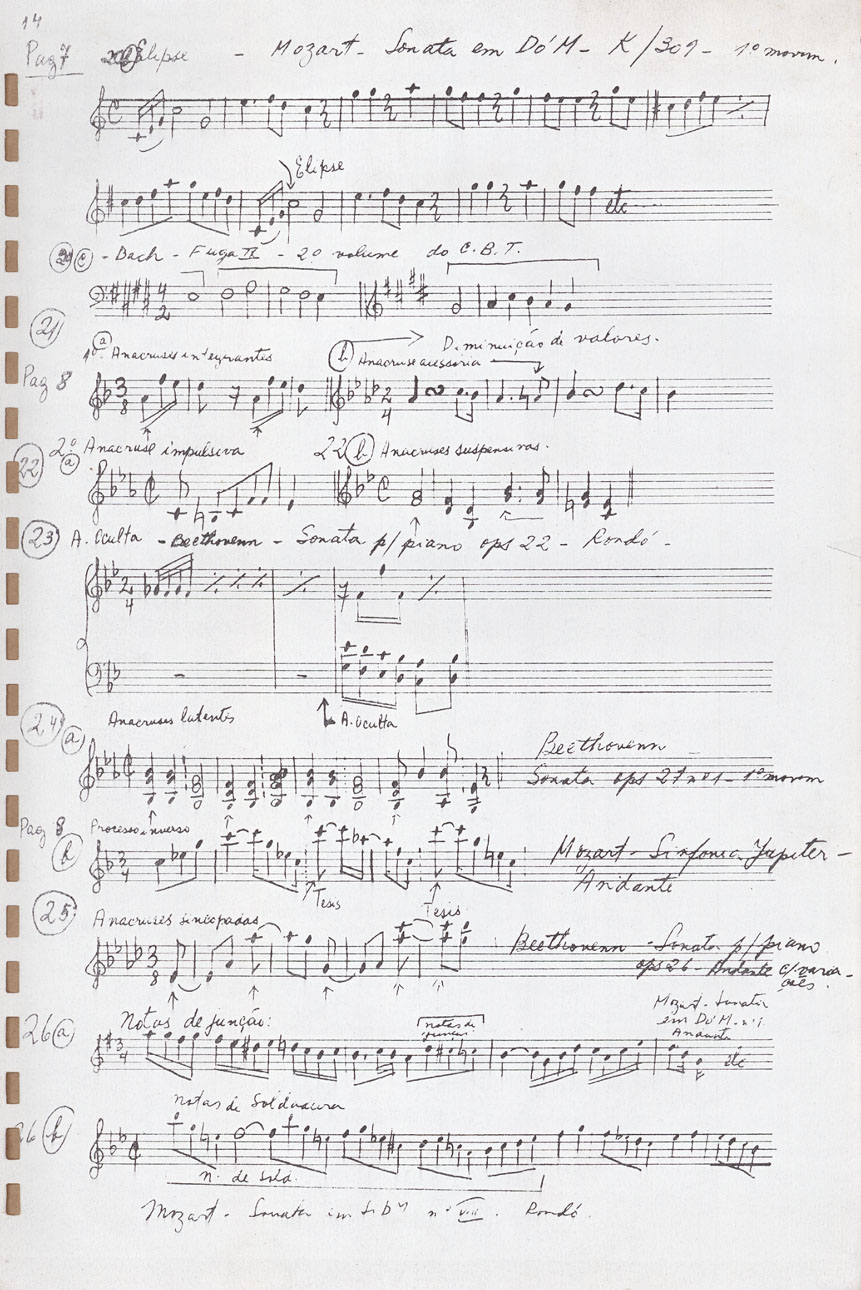 14
Pag 7 Elipse - Mozart - Sonata em Dó M - K/309 - 1º movim.
Elipse
etc
20 c - Bach - Fuga II - 2º volume do C.B.T.
21
1º a Anacruses integrantes
b Diminuição de valores.
Anacruse acessória
Pag 8
22 2º a Anacruse impulsiva 22 b Anacruses suspensivas.
23 A. Oculta - Beethovenn - Sonata p/ piano ops 22 - Rondó -
A. Oculta
24 a Anacruses latentes
Beethovenn
Sonata ops 27 nº 1 - 1º movim
Pag 8 Processo inverso
b
Mozart - Sinfonia Jupiter -
Andante
Tesis
Tesis
25 Anacruses sincopadas
Beethovenn - Sonata p/ piano
ops 26 - Andante c/ varia-
ções.
26 a Notas de junção:
notas de junção
Mozart - Sonata
em Dó M - nº 1
Andante
etc
notas de Soldadura
26 b
n. de sold.
Mozart - Sonata em Si b M nº VIII. Rondó.